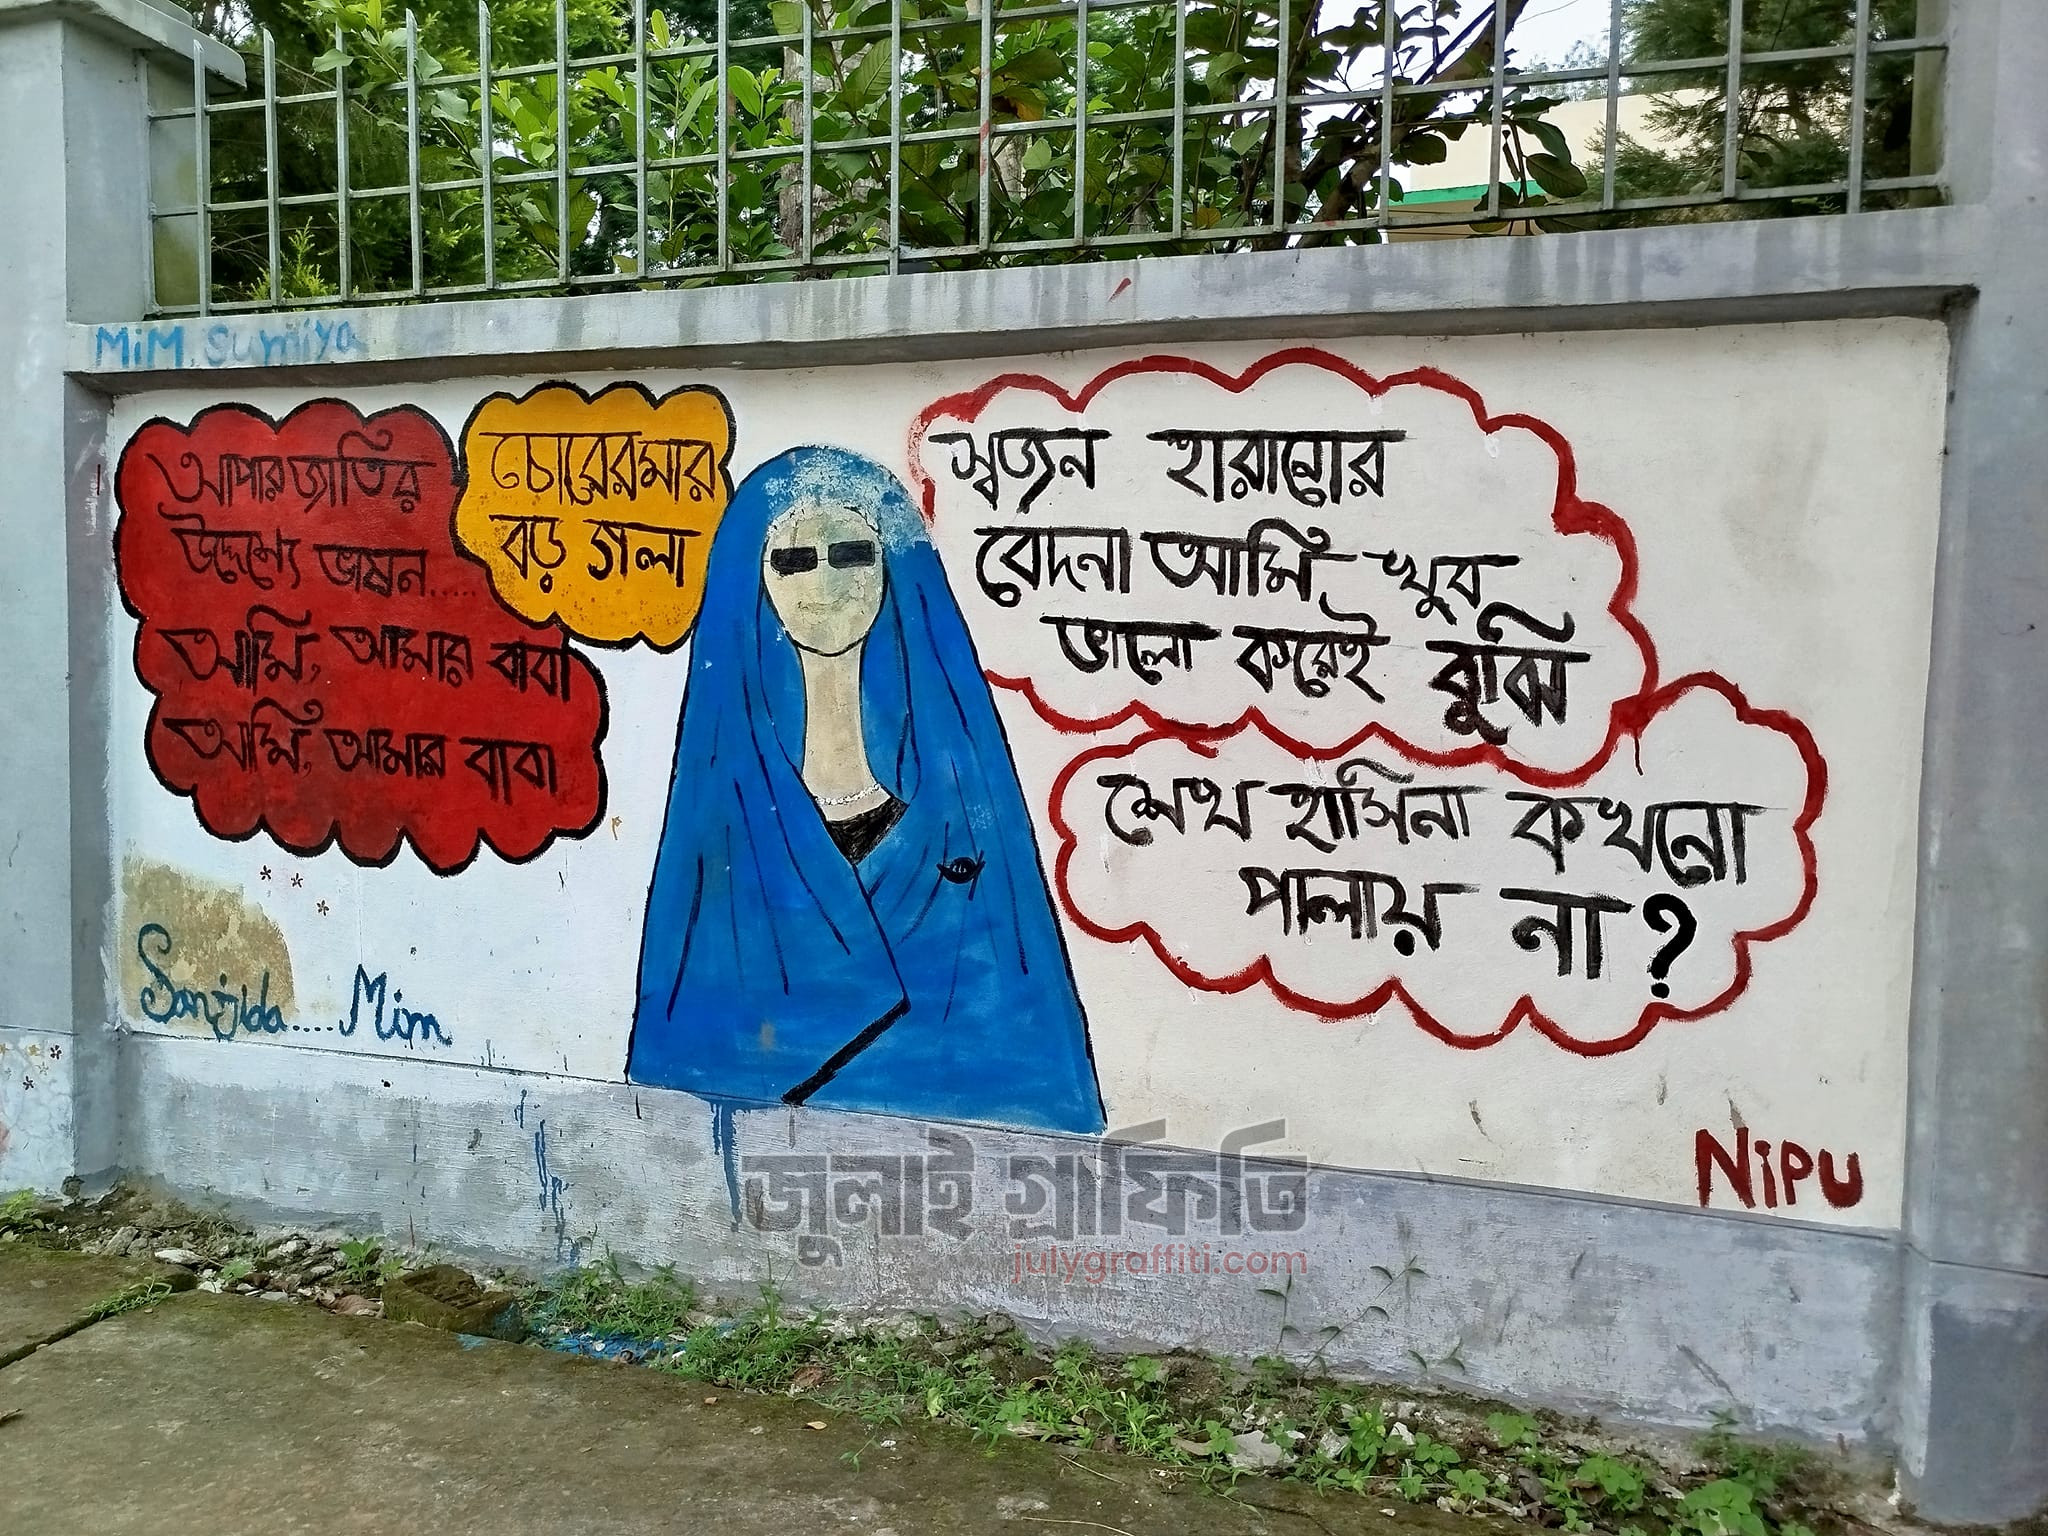 MiM. Sumiya
আপার জাতির
উদ্দেশ্যে ভাষন.....
আমি, আমার বাবা
আমি, আমার বাবা
চোরের মার
বড় গলা
স্বজন হারানোর
বেদনা আমি খুব
ভালো করেই বুঝি
শেখ হাসিনা কখনো
পালায় না?
Sanjida.... Mim
NiPU
জুলাই গ্রাফিতি
julygraffiti.com